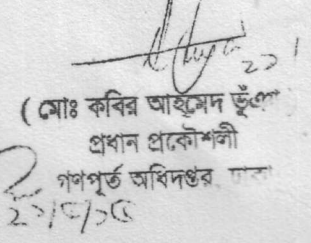 (মোঃ কবির আহমেদ ভূঁঞা
প্রধান প্রকৌশলী
গণপূর্ত অধিদপ্তর ঢাকা